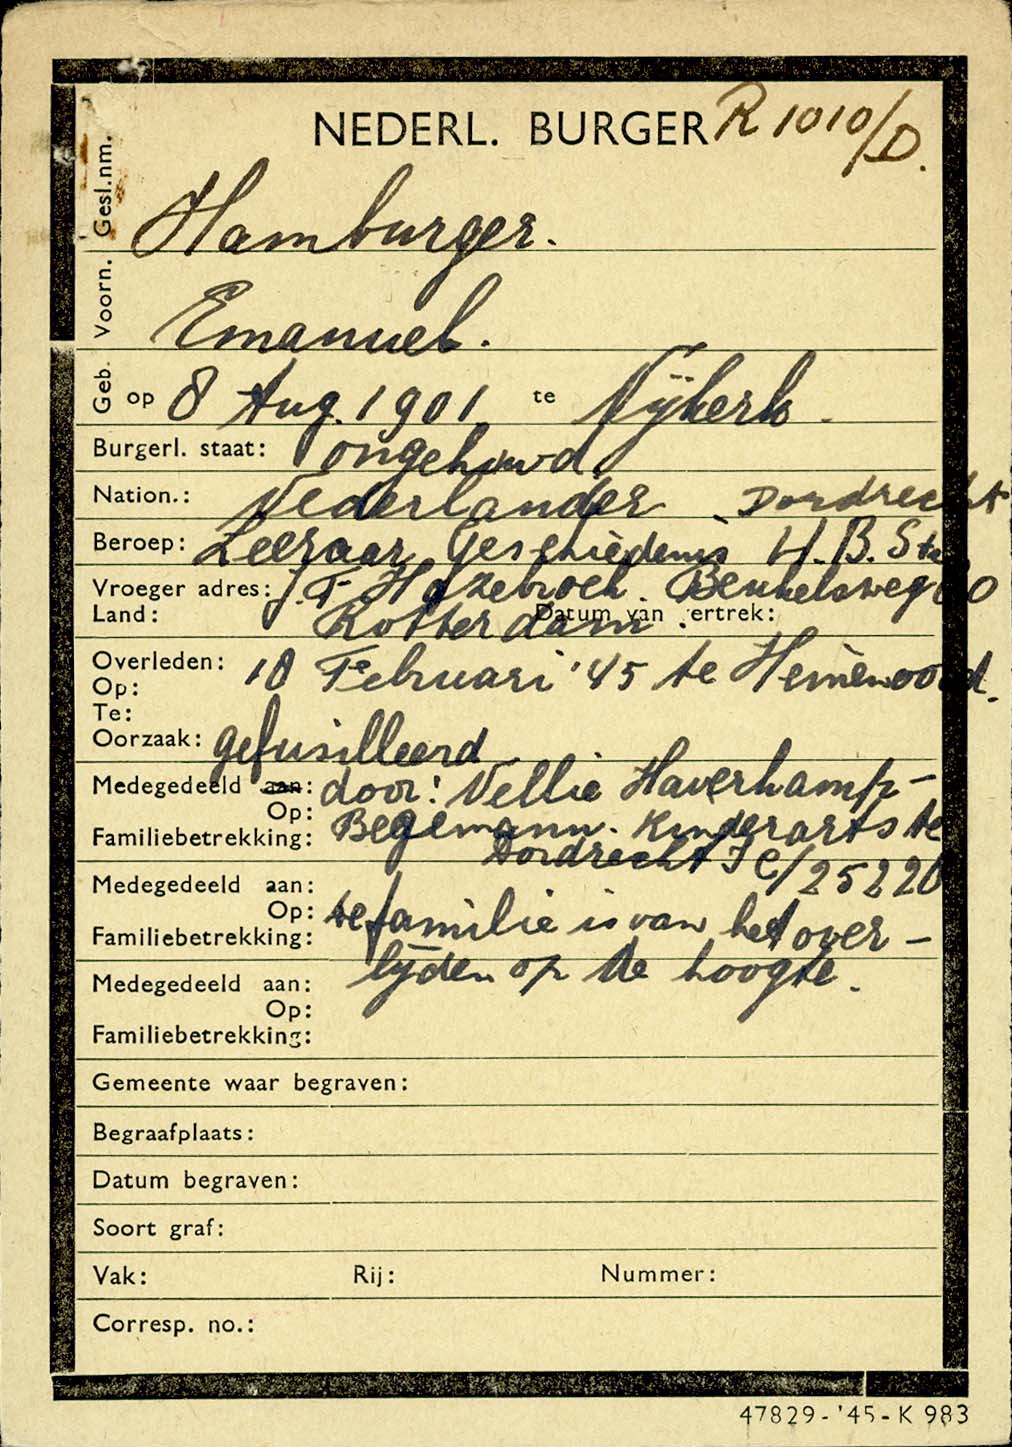 NEDERL. BURGER R 1010/D.
Gesl.nm. Hamburger.
Voorn. Emanuel.
Geb. op 8 Aug. 1901 te Nÿkerk.
Burgerl. staat: ongehuwd
Nation.: Nederlander Dordrecht
Beroep: Leeraar Geschiedenis H.B.S te
Vroeger adres: J.F. Hazebroek. Beukelsweg
Land: Rotterdam. Datum van ertrek:
Overleden: 18 Februari '45 te Heinenoord.
Op:
Te:
Oorzaak: gefusilleerd
Medegedeeld aan: door: Nellie Haverkamp-
Op:
Familiebetrekking: Begemann. Kinderarts te
Dordrecht JC/25220
Medegedeeld aan:
Op: De familie is van het over-
Familiebetrekking:
lÿden op de hoogte.
Medegedeeld aan:
Op:
Familiebetrekking:
Gemeente waar begraven:
Begraafplaats:
Datum begraven:
Soort graf:
Vak: Rij: Nummer:
Corresp. no.:
47829-'45-K 983